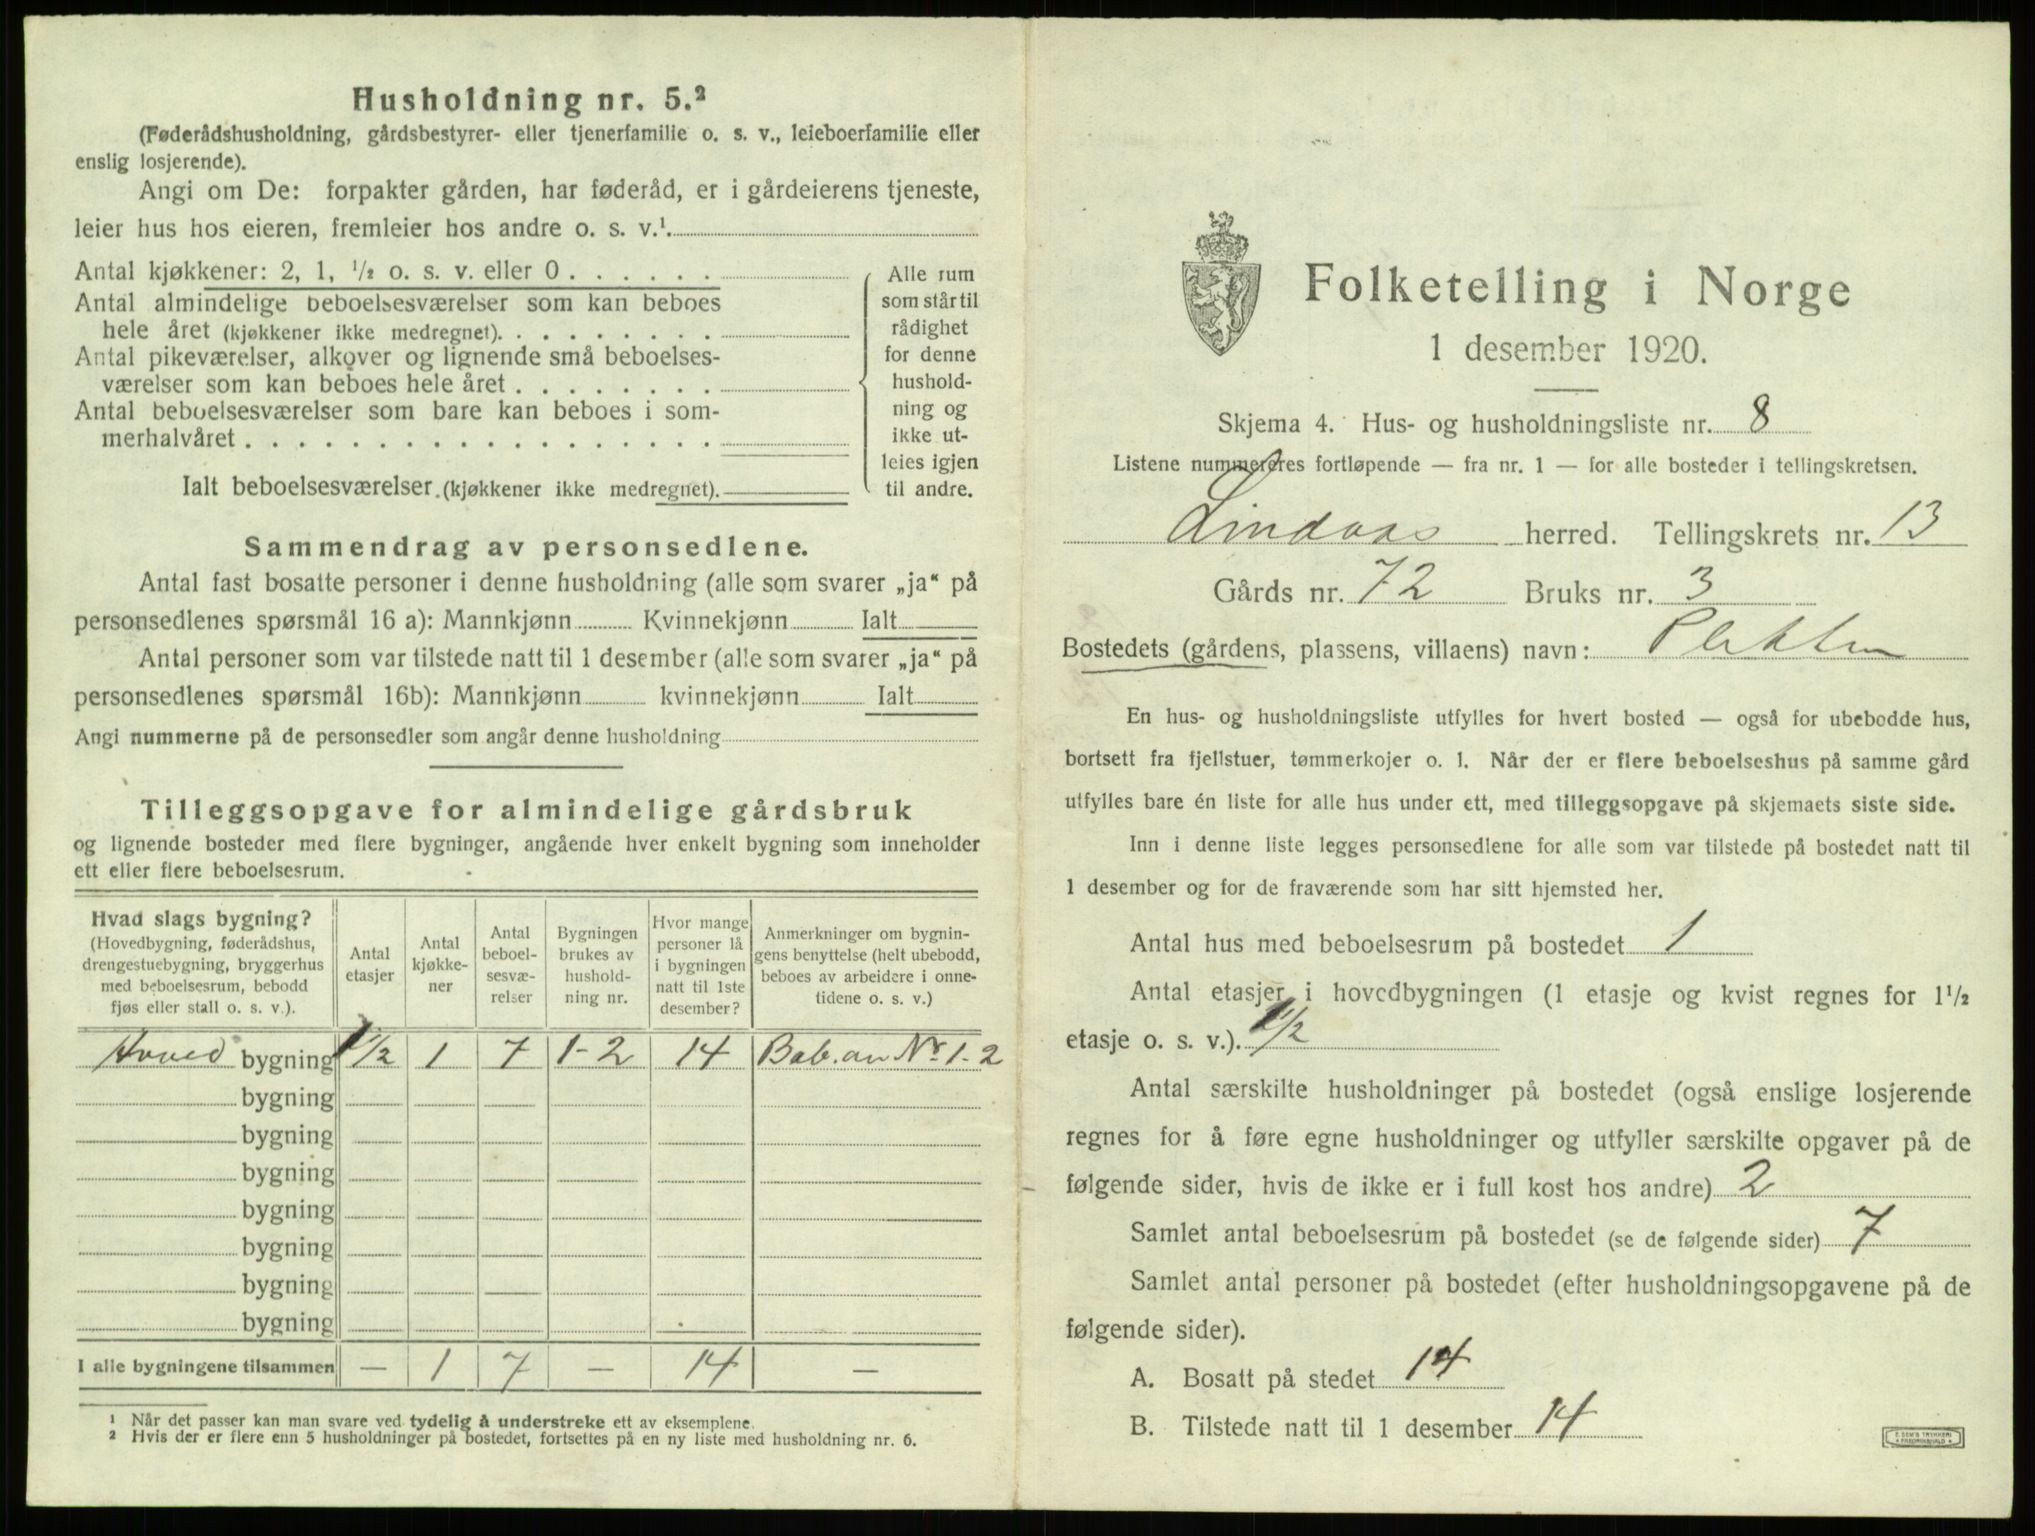 Husholdning nr. 5.²
(Føderådshusholdning, gårdsbestyrer- eller tjenerfamilie o. s. v., leieboerfamilie eller
enslig losjerende).
Angi om De: forpakter gården, har føderåd, er i gårdeierens tjeneste,
leier hus hos eieren, fremleier hos andre o. s. v.¹.
Antal kjøkkener: 2, 1, ½ o. s. v. eller 0 . . . . . .
Antal almindelige beboelsesværelser som kan beboes
hele året (kjøkkener ikke medregnet). . . . . . . . .
Antal pikeværelser, alkover og lignende små beboelses-
værelser som kan beboes hele året . . . . . . . .
Antal beboelsesværelser som bare kan beboes i som-
merhalvåret . . . . . . . . . . . . . . . . . .
Ialt beboelsesværelser (kjøkkener ikke medregnet).
Alle rum
som står til
rådighet
for denne
hushold-
ning og
ikke ut-
leies igjen
til andre.
Sammendrag av personsedlene.
Antal fast bosatte personer i denne husholdning (alle som svarer „ja“ på
personsedlenes spørsmål 16 a): Mannkjønn Kvinnekjønn Ialt
Antal personer som var tilstede natt til 1 desember (alle som svarer „ja“ på
personsedlenes spørsmål 16b): Mannkjønn kvinnekjønn Ialt
Angi nummerne på de personsedler som angår denne husholdning
Tilleggsopgave for almindelige gårdsbruk
og lignende bosteder med flere bygninger, angående hver enkelt bygning som inneholder
ett eller flere beboelsesrum.
Hvad slags bygning?
(Hovedbygning, føderådshus,
drengestuebygning, bryggerhus
med beboelsesrum, bebodd
fjøs eller stall o. s. v.).
Antal
etasjer
Antal
kjøkke-
ner
Antal
beboel-
sesvæ-
relser
Bygningen
brukes av
hushold-
ning nr.
Hvor mange
personer lå
i bygningen
natt til 1ste
desember?
Anmerkninger om bygnin-
gens benyttelse (helt ubebodd,
beboes av arbeidere i onne-
tidene o. s. v.)
Hoved bygning 1½ 1 7 1-2 14 Beb. av Nr. 1-2
bygning
bygning
bygning
bygning
bygning
bygning
bygning
I alle bygningene tilsammen — 1 7 — 14 —
¹ Når det passer kan man svare ved tydelig å understreke ett av eksemplene.
² Hvis der er flere enn 5 husholdninger på bostedet, fortsettes på en ny liste med husholdning nr. 6.
Folketelling i Norge
1 desember 1920.
Skjema 4. Hus- og husholdningsliste nr. 8
Listene nummereres fortløpende — fra nr. 1 — for alle bosteder i tellingskretsen.
Lindaas herred. Tellingskrets nr. 13
Gårds nr. 72 Bruks nr. 3
Bostedets (gårdens, plassens, villaens) navn:
En hus- og husholdningsliste utfylles for hvert bosted — også for ubebodde hus,
bortsett fra fjellstuer, tømmerkojer o. l. Når der er flere beboelseshus på samme gård
utfylles bare én liste for alle hus under ett, med tilleggsopgave på skjemaets siste side.
Inn i denne liste legges personsedlene for alle som var tilstede på bostedet natt til
1 desember og for de fraværende som har sitt hjemsted her.
Antal hus med beboelsesrum på bostedet 1
Antal etasjer i hovedbygningen (1 etasje og kvist regnes for 1½
etasje o. s. v.). 1½
Antal særskilte husholdninger på bostedet (også enslige losjerende
regnes for å føre egne husholdninger og utfyller særskilte opgaver på de
følgende sider, hvis de ikke er i full kost hos andre) 2
Samlet antal beboelsesrum på bostedet (se de følgende sider) 7
Samlet antal personer på bostedet (efter husholdningsopgavene på de
følgende sider).
A. Bosatt på stedet 14
B. Tilstede natt til 1 desember 14